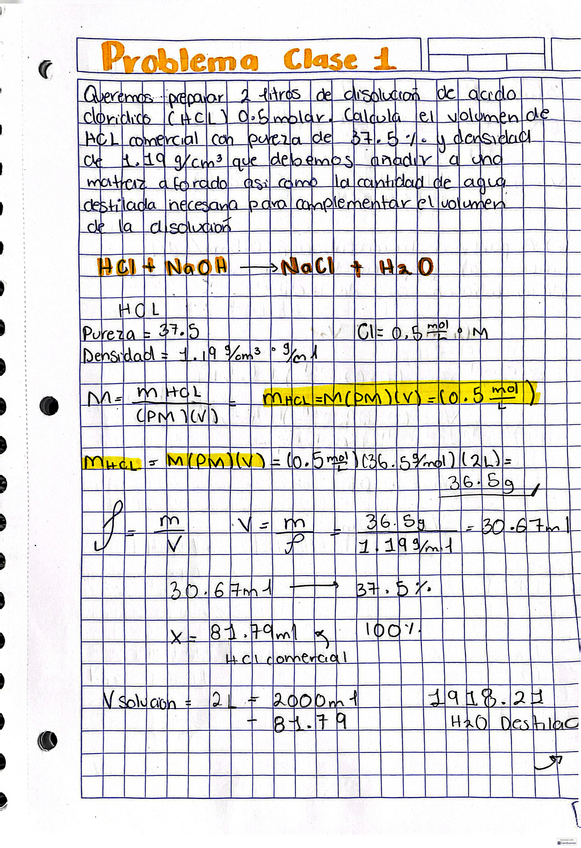 Problema Clase 1
Queremos preparar 2 litros de disolución de acido
cloridico (HCL) 0.5 molar. Calcula el volumen de
HCL comercial con pureza de 37.5 %. y densidad
de 1.19 g/cm³ que debemos añadir a una
matraz aforado asi como la cantidad de agua
destilada necesaria para complementar el volumen
de la disolución
HCl + NaOH → NaCl + H2O
HCL
Pureza = 37.5 Cl= 0.5 mol/L ° M
Densidad = 1.19 g/cm³ ° g/ml
M = mHCL/(PM)(V) = mHCL=M(PM)(V)=(0.5 mol/L)
MHCL = M(PM)(V) = (0.5 mol/L)(36.5 g/mol)(2L)=
36.5g
ρ = m/V V = m/ρ = 36.5g/1.19g/ml = 30.67ml
30.67ml → 37.5%.
X= 81.79ml 100%
HCl comercial
V solucion = 2L = 2000ml 1918.21
- 81.79 H2O Destilac